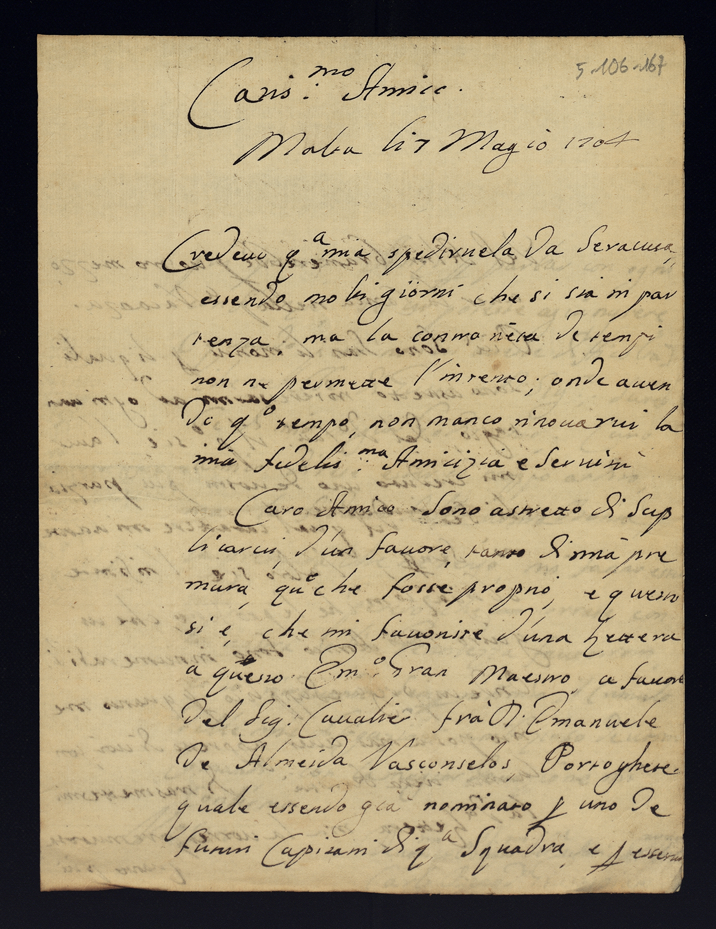 5-106-167
Caris.mo Amico.
Malta li 7 Magio 1704
Credeuo q.a mia spediruela da Seracusa,
essendo molti giorni che si sta in par
tenza. ma la contrarietà de tempi
non ne permette l'intento; onde auen
do q.o tempo, non manco rinouarui la
mia fedelis.ma Amicizia e Seruitù
Caro Amico sono astretto di sup
licarui, d'un fauore, tanto di mia pre
mura, q.o che fosse proprio, e questo
si è, che mi fauorite d'una lettera
a questo Em.o Gran Maestro, a fauore
del Sig. Caualier frà D. Emanuele
de Almeida Vasconselos, Portoghese.
quale essendo già nominato p uno de
futuri Capitani di q.a Squadra, e p essere